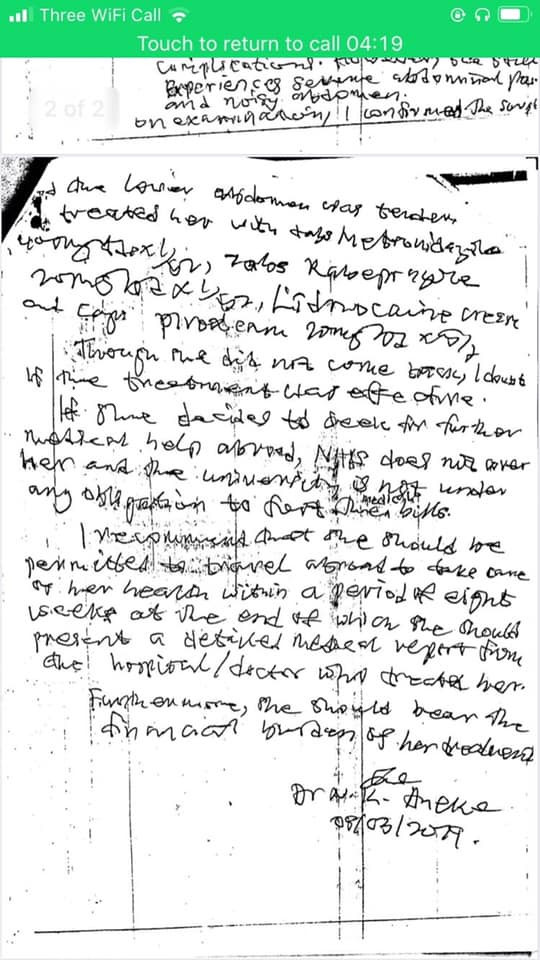 Three WiFi Call
Touch to return to call 04:19
complications.
Experiences severe abdominal
and noisy abdomen.
on examination, I confirmed the
2 of 2
the lower abdomen was tender,
treated her with tabs Metronidazole
tabs Rabeprazole
20mg Lidnocaine creame
and caps piroxicam 20mg
Though she did not come back, I doubt
if the treatment was effective.
If she decides to seek for further
medical help abroad, NHIS does not cover
her and the university is not under
any obligation to foot medical bills.
I recommend that she should be
permitted to travel abroad to take care
of her health within a period of eight
weeks at the end of which she should
present a detailed medical report from
the hospital/doctor who treated her.
Furthermore, she should bear the
financial burden of her treatment
Dr K. Aneke
08/03/2019.